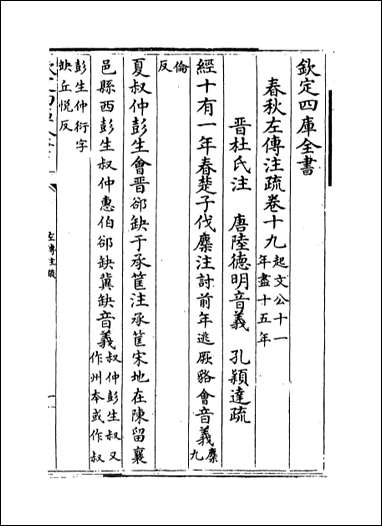 欽定四庫全書
春秋左傳注疏卷十九起文公十一
年盡十五年
晋杜氏注 唐陸德明音義 孔穎達疏
經十有一年春楚子伐麇注討前年逃厥貉會音義麇九
倫反
夏叔仲彭生會晋郤缺于承筐注承筐宋地在陳留襄
邑縣西彭生叔仲惠伯郤缺冀缺音義叔仲彭生叔又
作州本或作叔
彭生仲衍字
缺丘悦反
左傳注疏